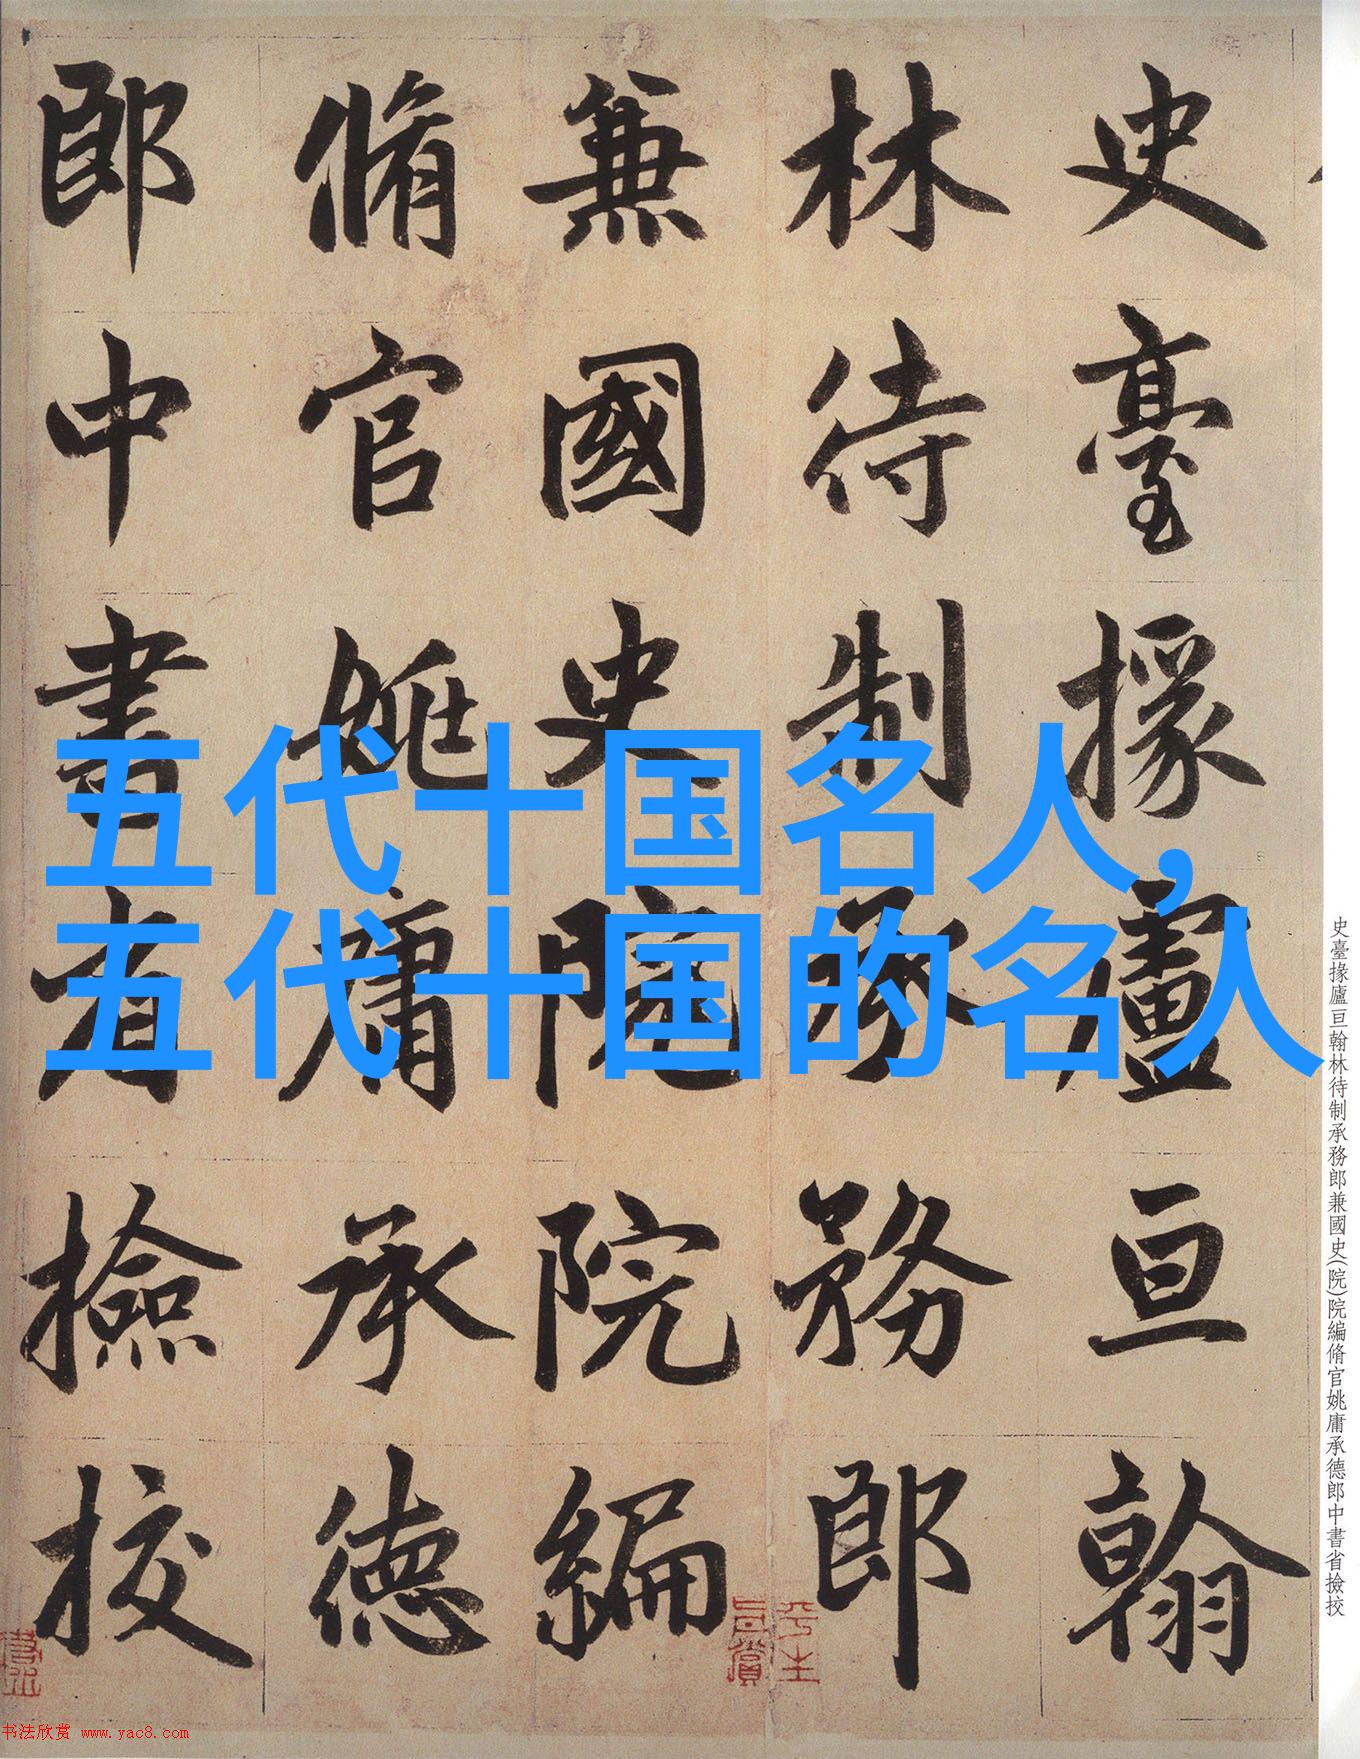 史臺掾廬亘翰
林待制承務郎
兼國史院院編
脩官姚庸承德
郎中書省撿挍
五代十国名人,
五代十国的名人
史臺掾廬亘翰林待制承務郎兼國史(院)院編脩官姚庸承德郎中書省撿挍
平生
真賞
书法欣赏 www.yac8.com